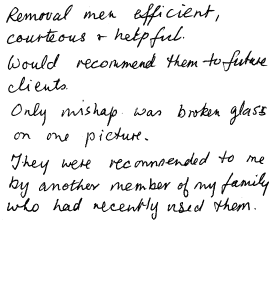 Removal men efficient,
courteous & helpful.
Would recommend them to future
clients.
Only mishap was broken glass
on one picture.
They were recommended to me
by another member of my family
who had recently used them.